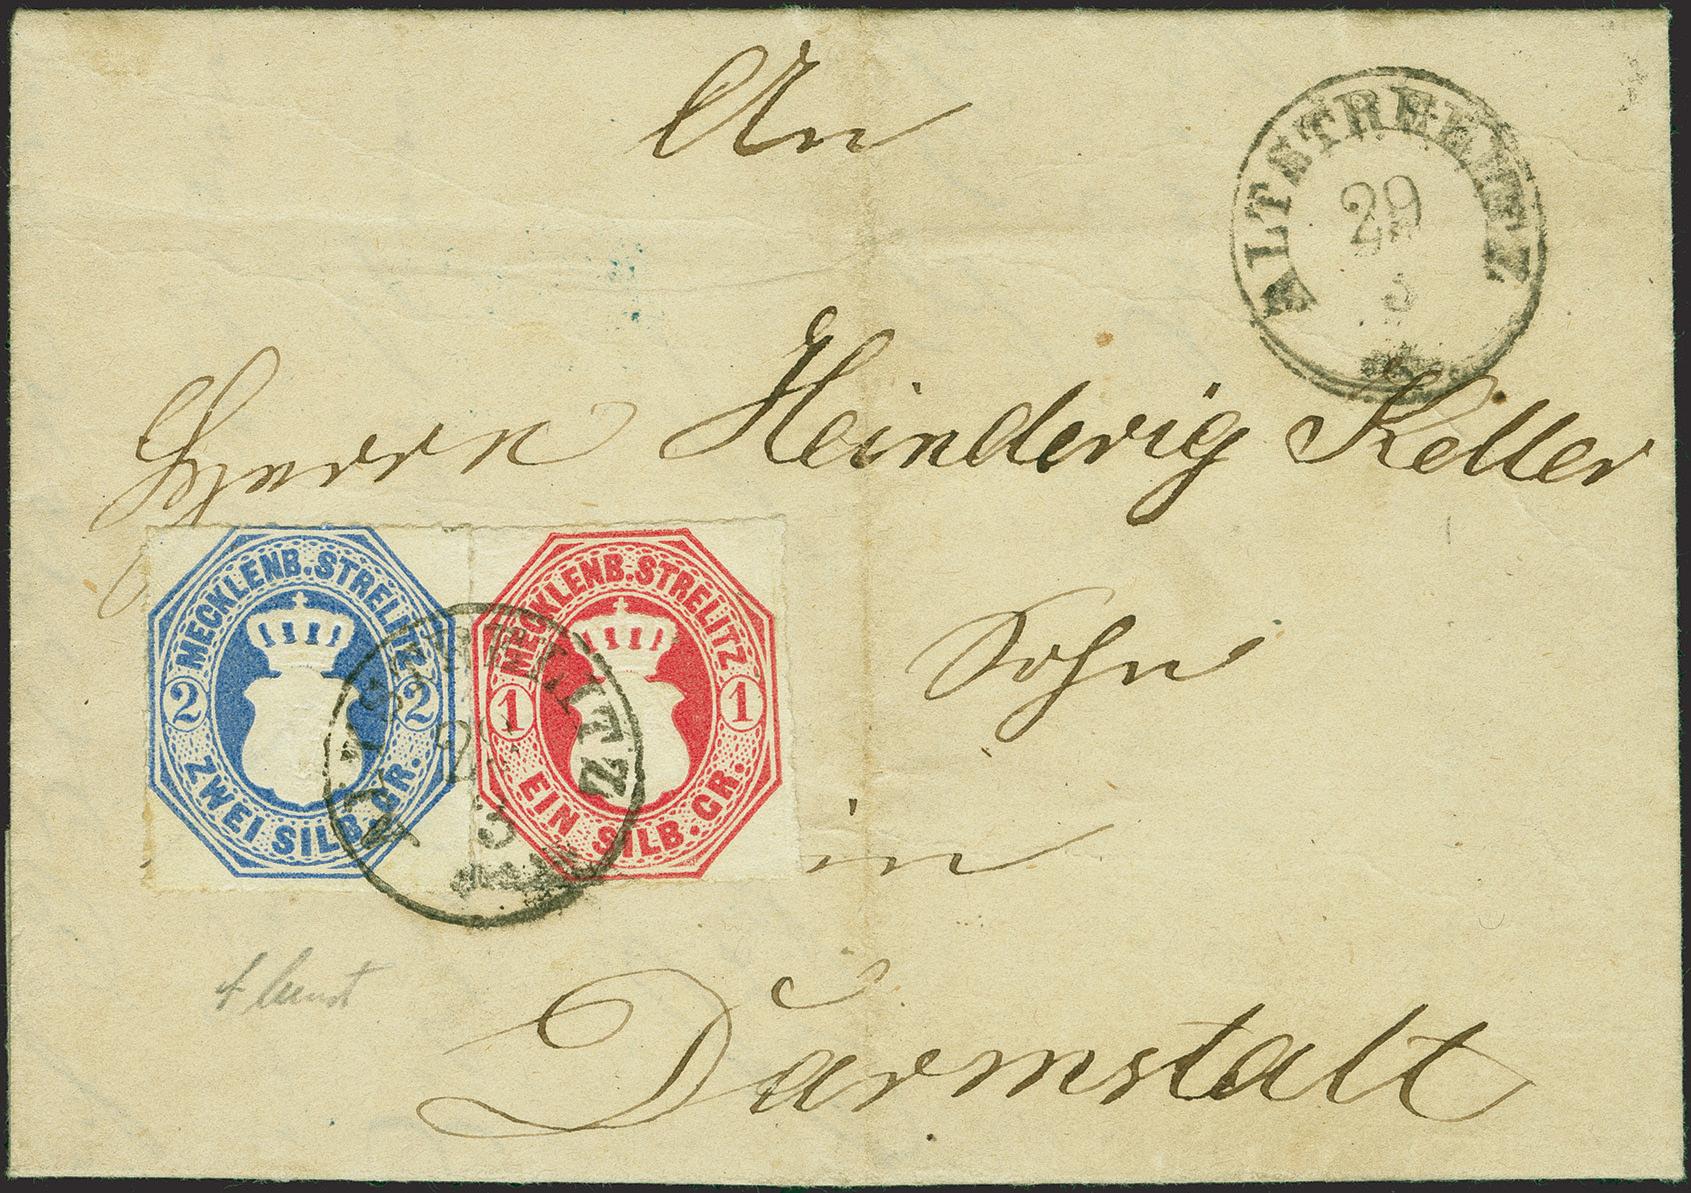 An
ALTSTRELITZ
29
3
Herrn Heinderig Keller
Sohn
in
Darmstalt
MECKLENB. STRELITZ
2 2
ZWEI SILB. GR.
MECKLENB. STRELITZ
1 1
EIN SILB. GR.
ALTSTRELITZ
29
3